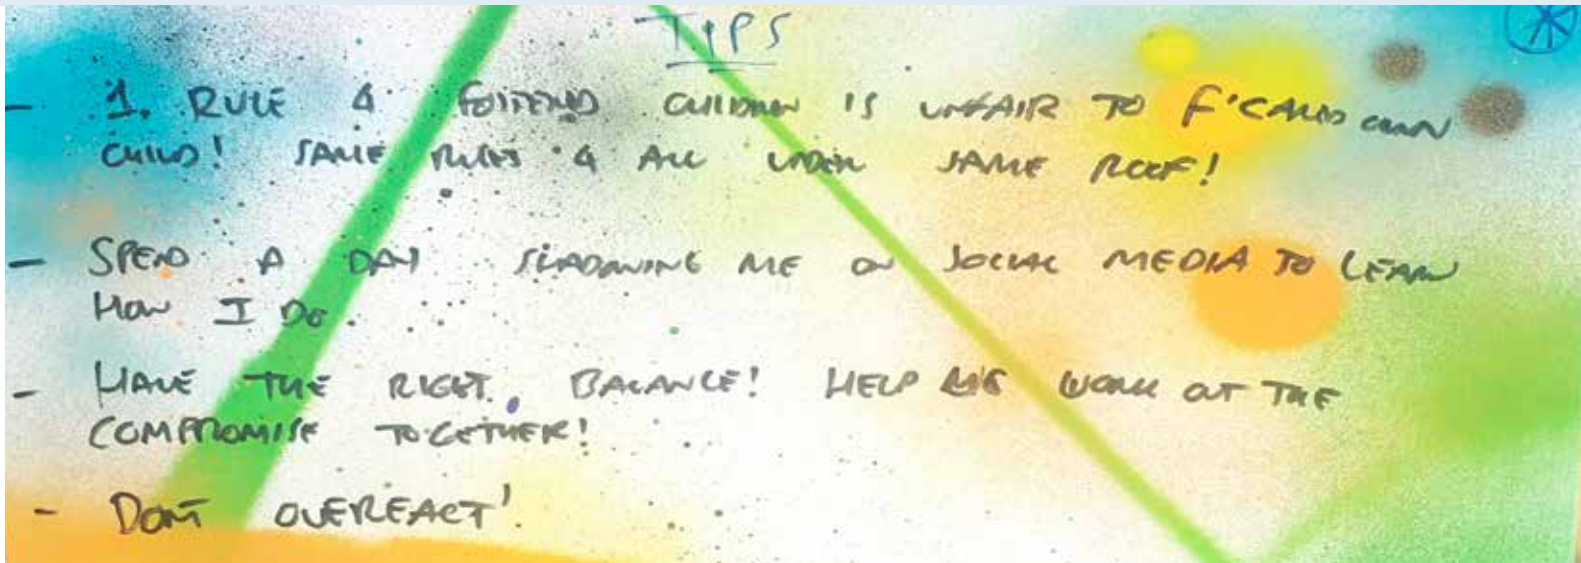 TIPS
- 1. RULE 4 FOSTERED CHILDREN IS UNFAIR TO F'CARERS OWN
CHILD! SAME RULES 4 ALL UNDER SAME ROOF!
- SPEND A DAY SHADOWING ME ON SOCIAL MEDIA TO LEARN
HOW I DO.
- HAVE THE RIGHT BALANCE! HELP WORK OUT THE
COMPROMISE TOGETHER!
- DONT OVEREACT!